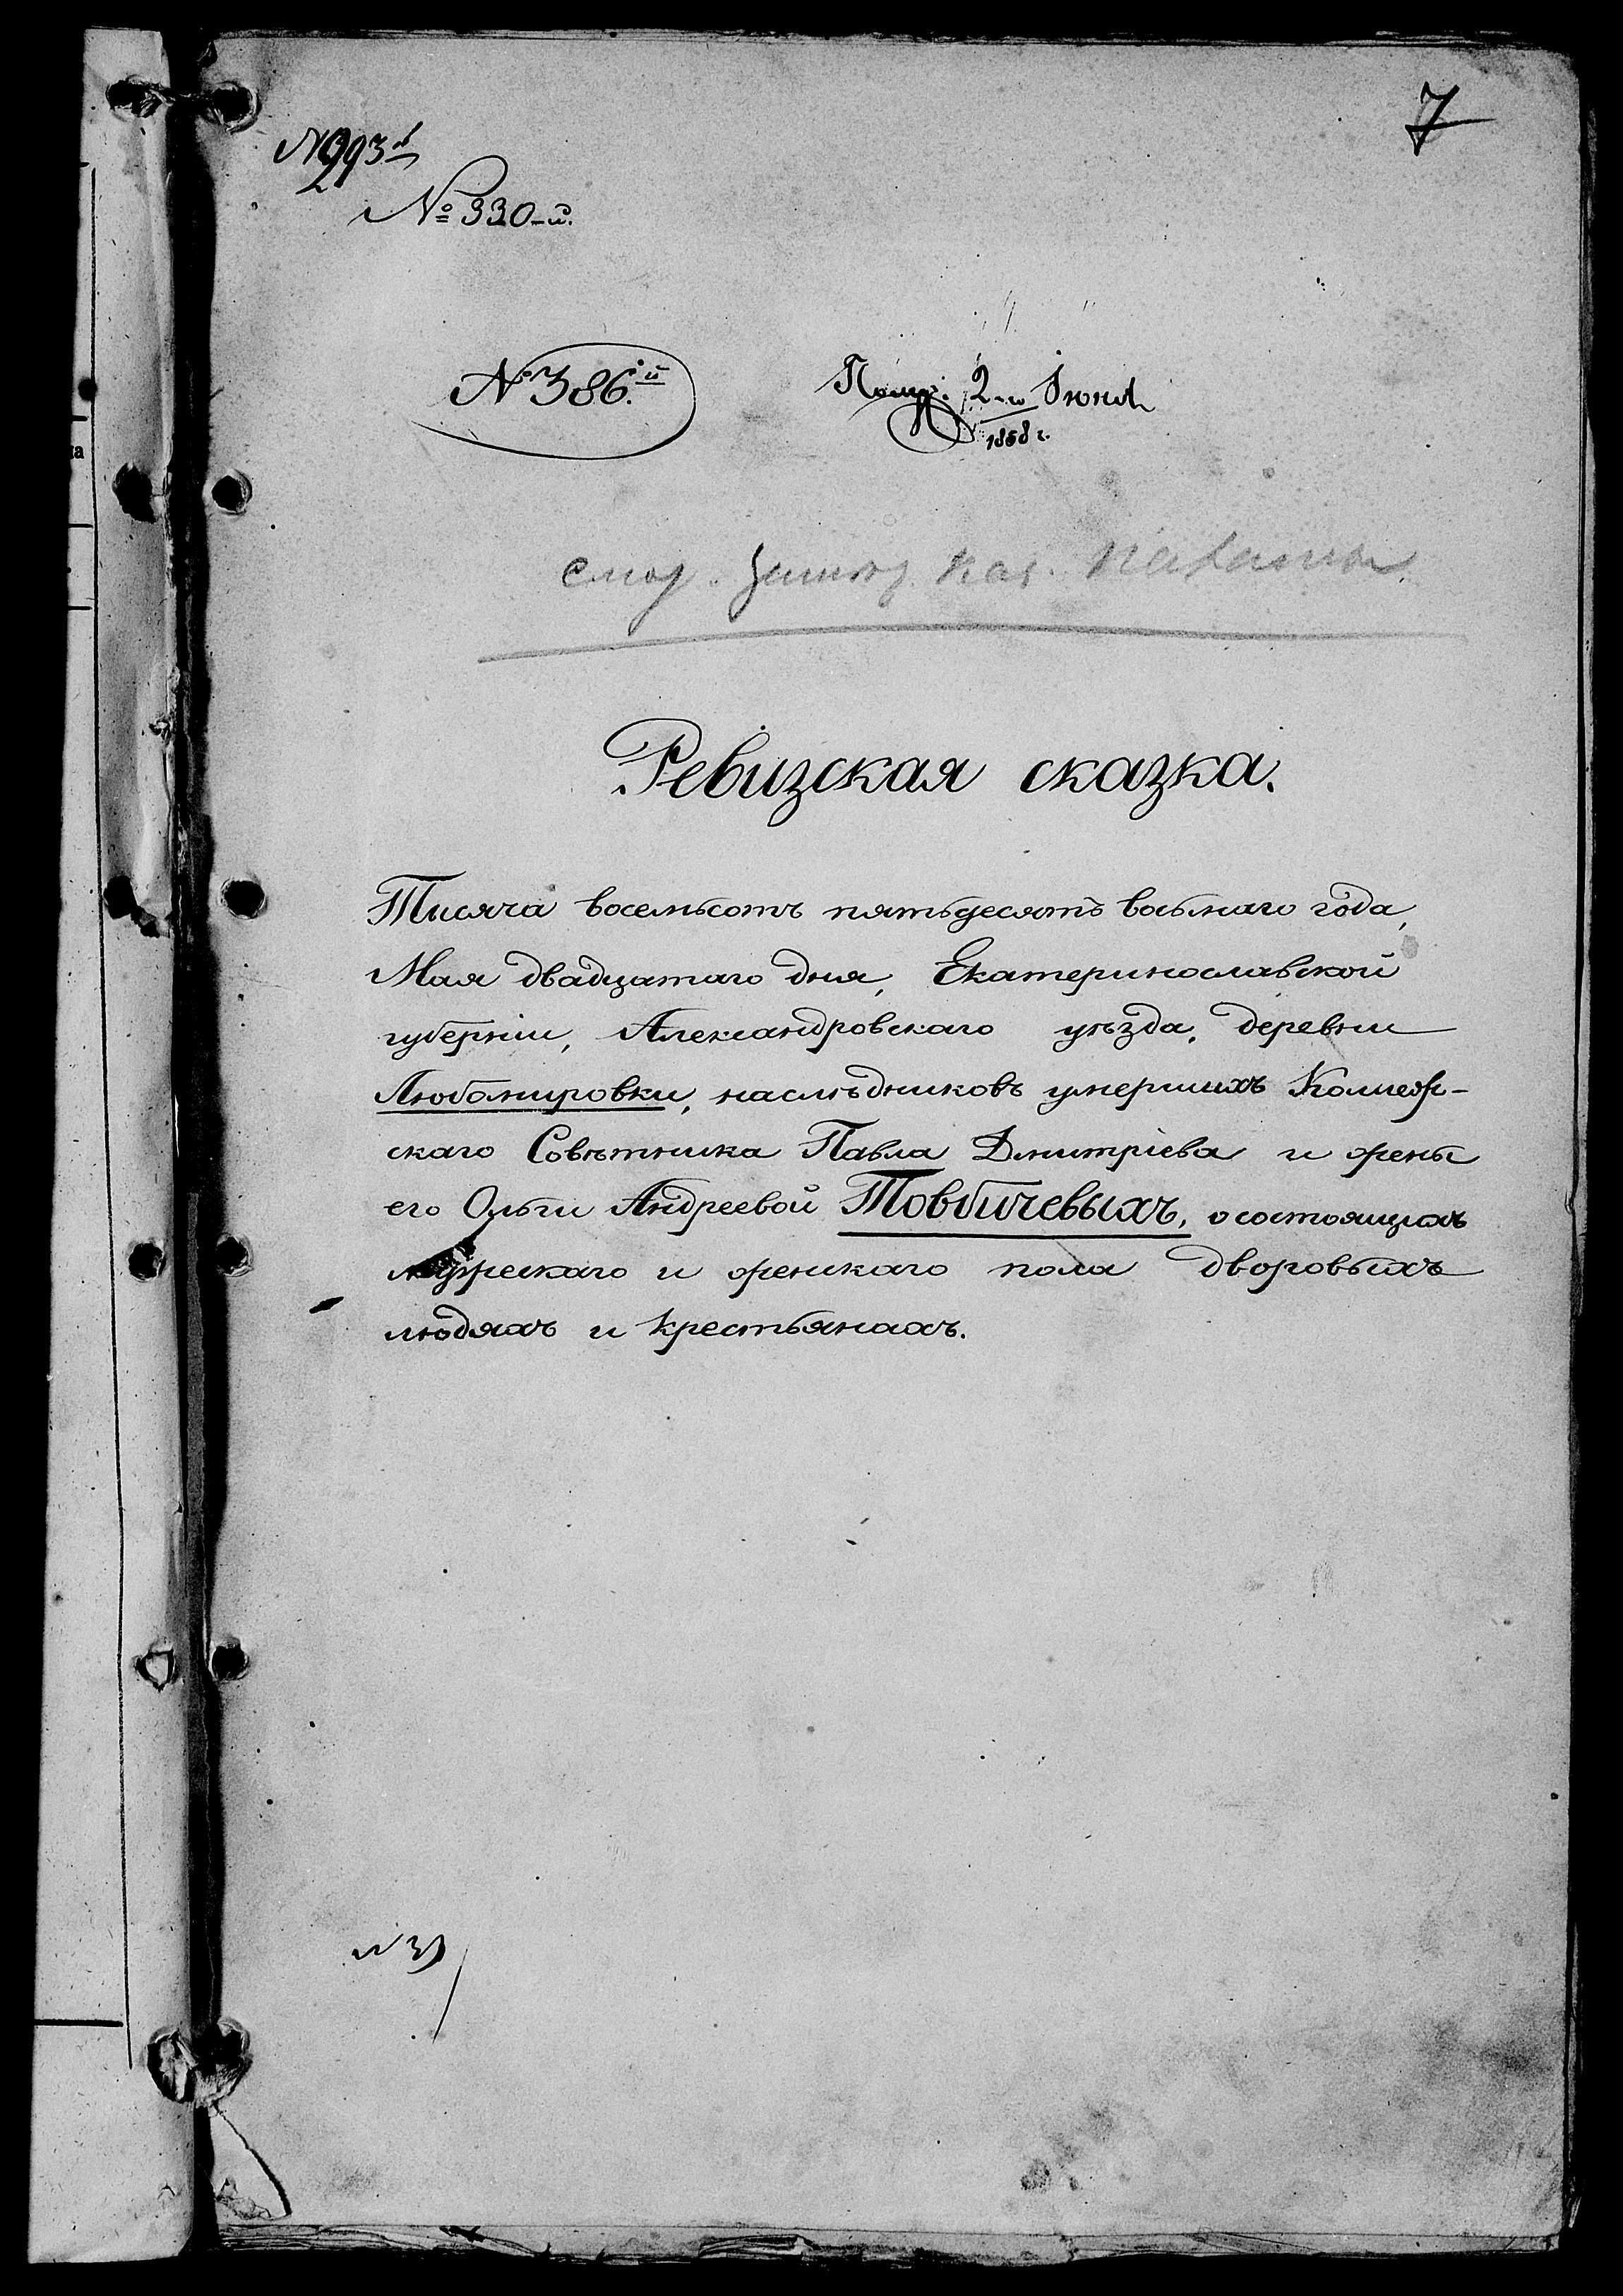 7
№ 993-й
№ 330-й.
№ 386.й
Получ. 2-го Іюня
1858 г.
Каз. Палаты
Ревизская сказка.
Тысяча восемьсотъ пятьдесятъ восьмаго года,
Мая двадцатаго дня, Екатеринославской
губерніи, Александровскаго уѣзда, деревни
Любомировки, наслѣдниковъ умершихъ Коллеж-
скаго Совѣтника Павла Дмитріева и жены
его Ольги Андреевой Товбичевыхъ, о состоящихъ
мужескаго и женскаго пола дворовыхъ
людяхъ и крестьянахъ.
ка